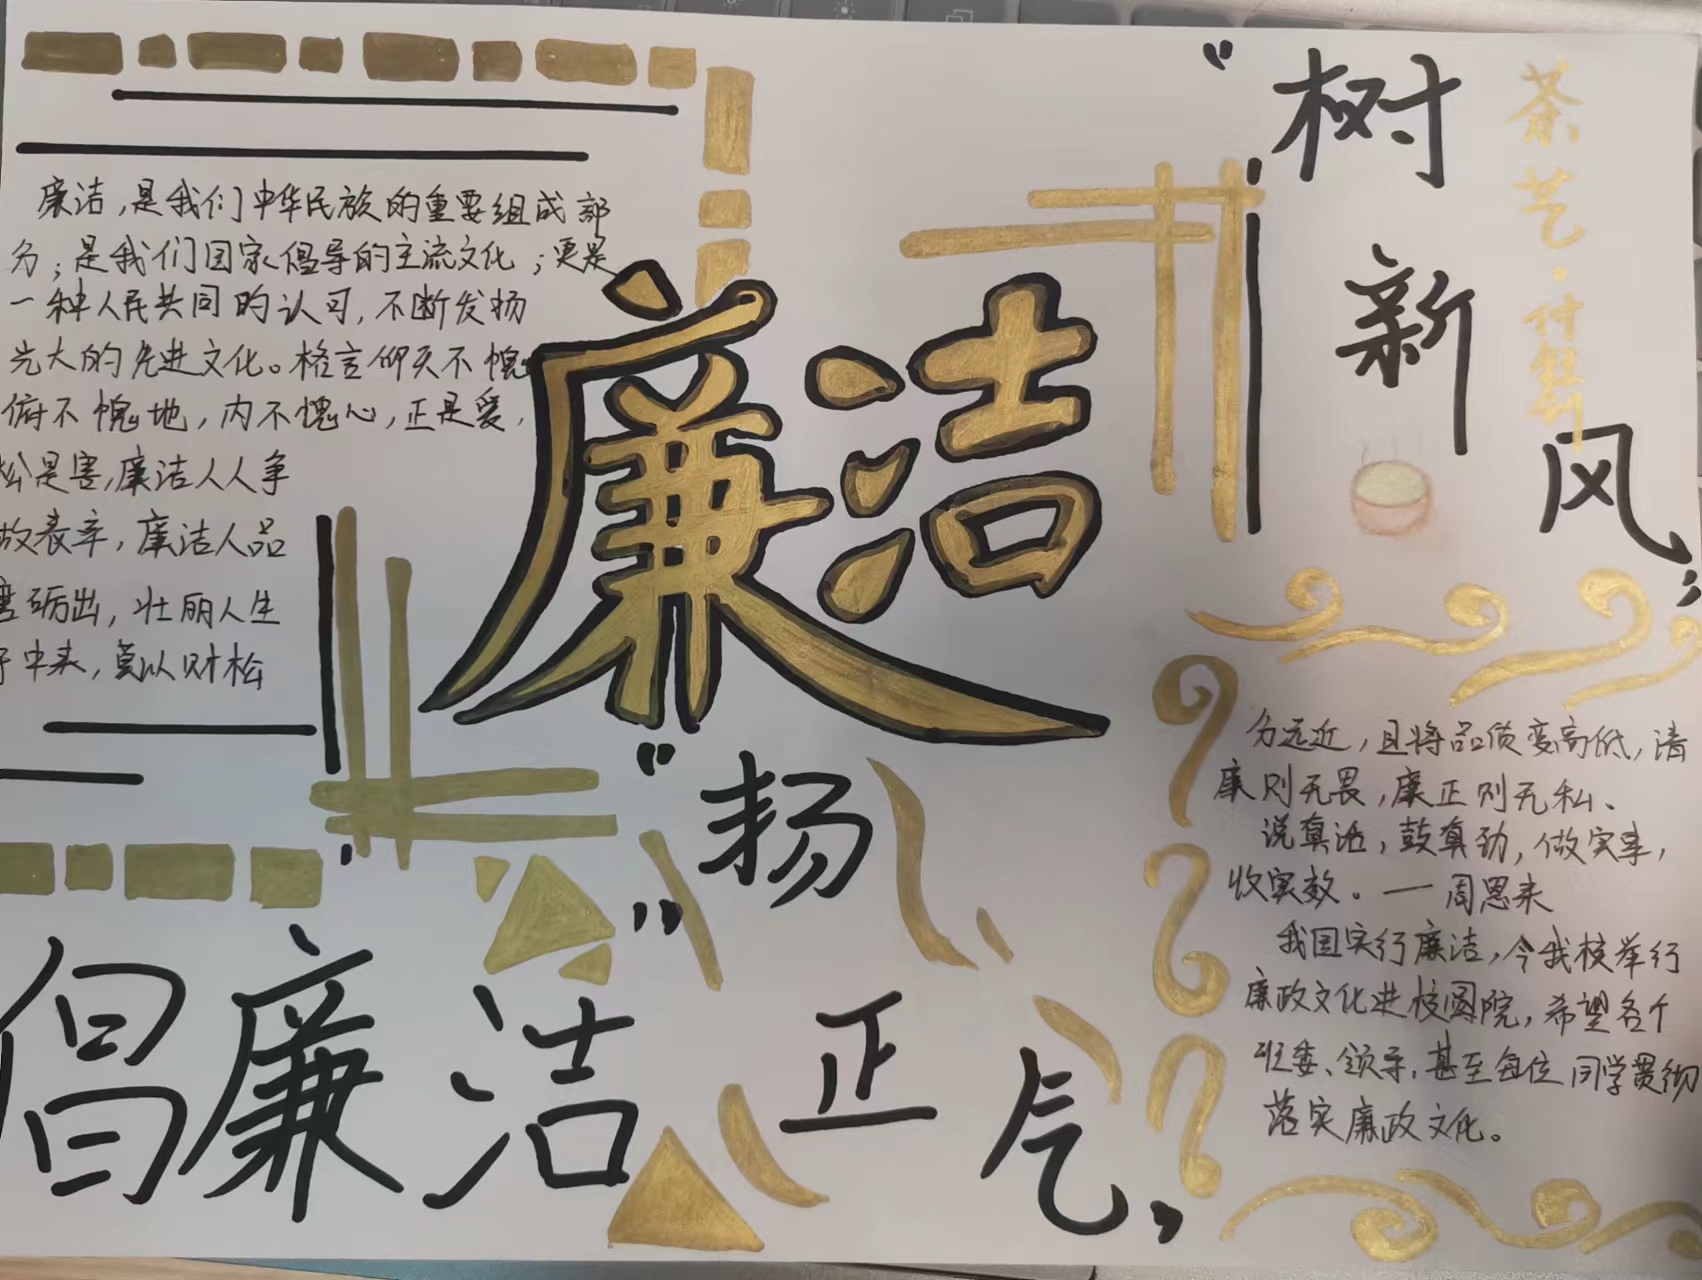 廉洁，是我们中华民族的重要组成部
分；是我们国家倡导的主流文化；更是
一种人民共同的认可，不断发扬
光大的先进文化。格言仰天不愧
俯不愧地，内不愧心，正是爱，
松是害，廉洁人人争
做表率，廉洁人品
砺出，壮丽人生
中来，莫以财松
廉洁
“树
新
风”
茶艺·
“扬
正
气”
“倡廉洁”
分远近，且将品质变高低，清
廉则无畏，廉正则无私、
说真话，鼓真劲，做实事，
收实效。——周恩来
我国实行廉洁，今我校举行
廉政文化进校园院，希望各个
班委、领导，甚至每位同学贯彻
落实廉政文化。